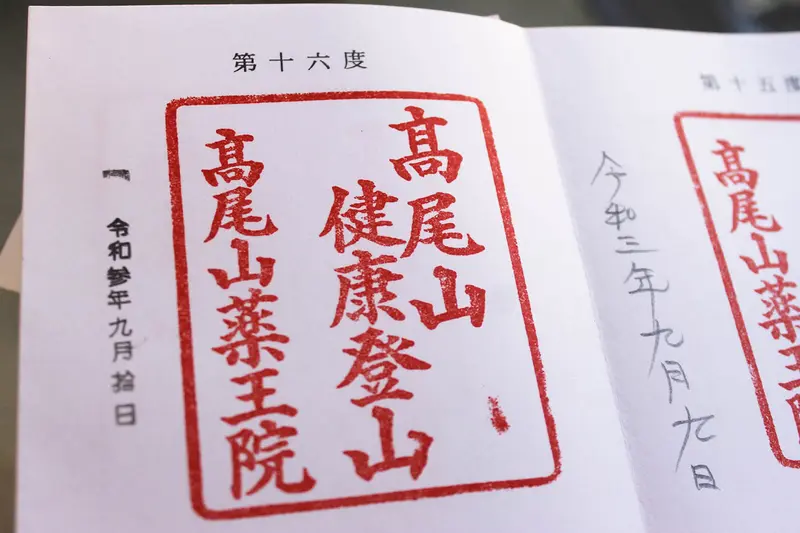 第十五度
髙尾山薬王院
令和三年九月九日
第十六度
髙尾山
健康登山
髙尾山薬王院
令和参年九月拾日